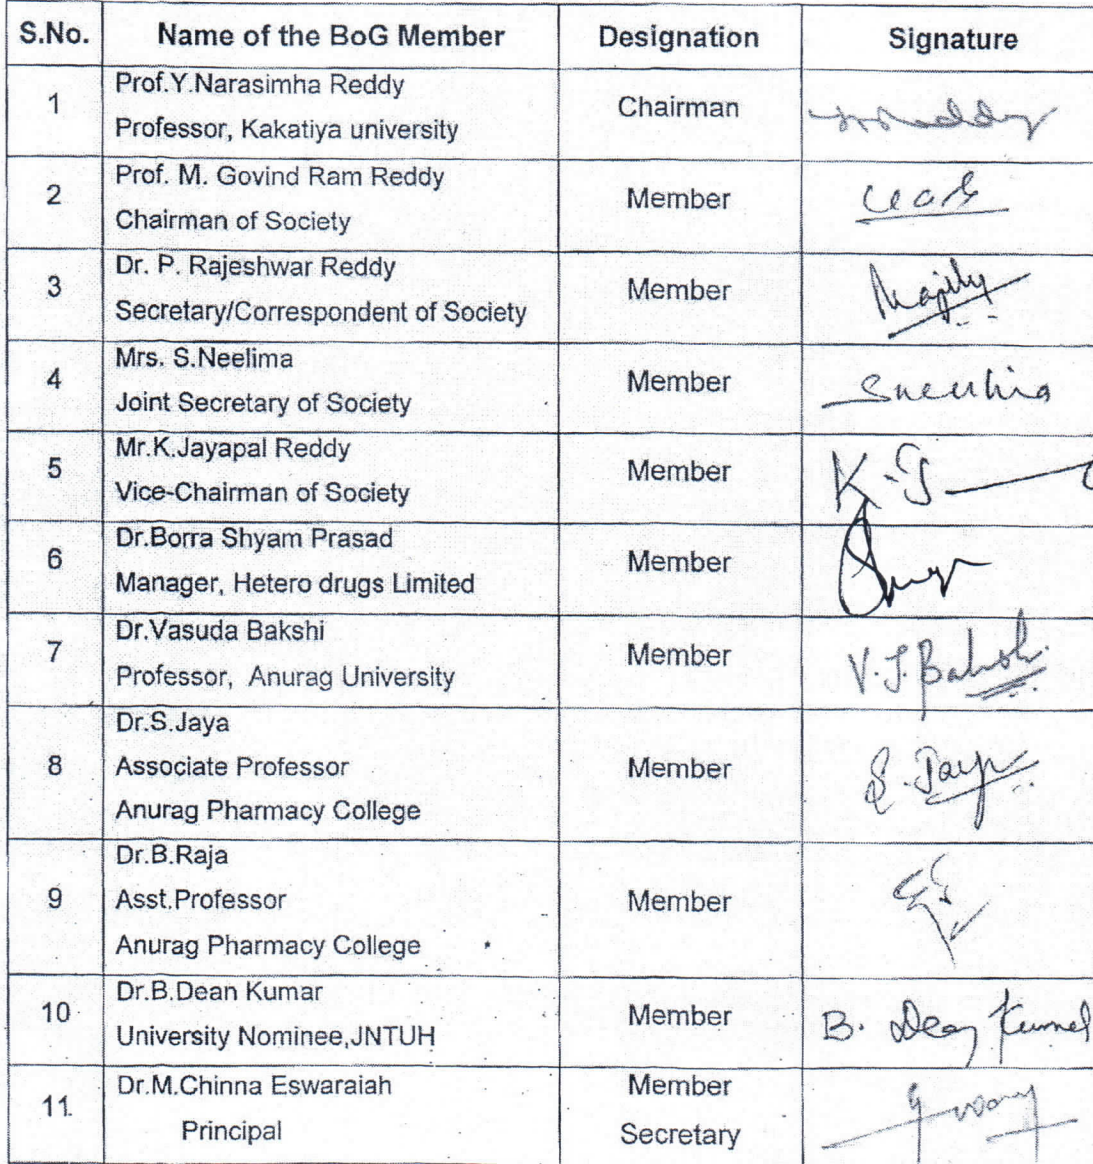 S.No. Name of the BoG Member Designation Signature
1 Prof.Y.Narasimha Reddy
Professor, Kakatiya university Chairman
2 Prof. M. Govind Ram Reddy
Chairman of Society Member
3 Dr. P. Rajeshwar Reddy
Secretary/Correspondent of Society Member
4 Mrs. S.Neelima
Joint Secretary of Society Member
5 Mr.K.Jayapal Reddy
Vice-Chairman of Society Member
6 Dr.Borra Shyam Prasad
Manager, Hetero drugs Limited Member
7 Dr.Vasuda Bakshi
Professor, Anurag University Member V.J.Bakshi
8 Dr.S.Jaya
Associate Professor Member S. Jaya
Anurag Pharmacy College
9 Dr.B.Raja
Asst.Professor Member
Anurag Pharmacy College
10 Dr.B.Dean Kumar
University Nominee,JNTUH Member B. Dean Kumar
11. Dr.M.Chinna Eswaraiah Member
Principal Secretary